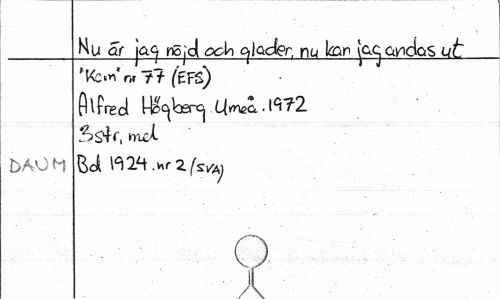 Nu är jag nöjd och glader, nu kan jag andas ut
"Kom" nr 77 (EFS)
Alfred Högberg Umeå. 1972
3str, mel
DAUM Bd 1924. nr 2 (SVA)